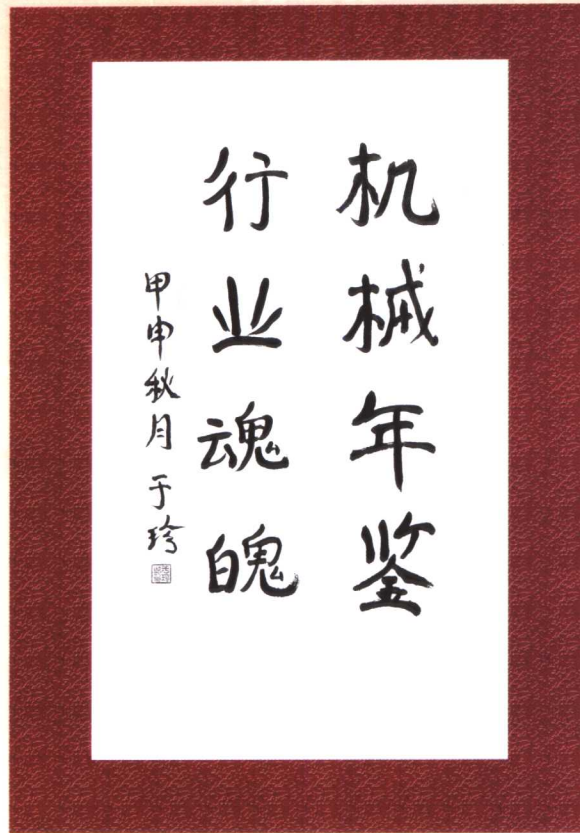 机械年鉴
行业魂魄
甲申秋月 于珍